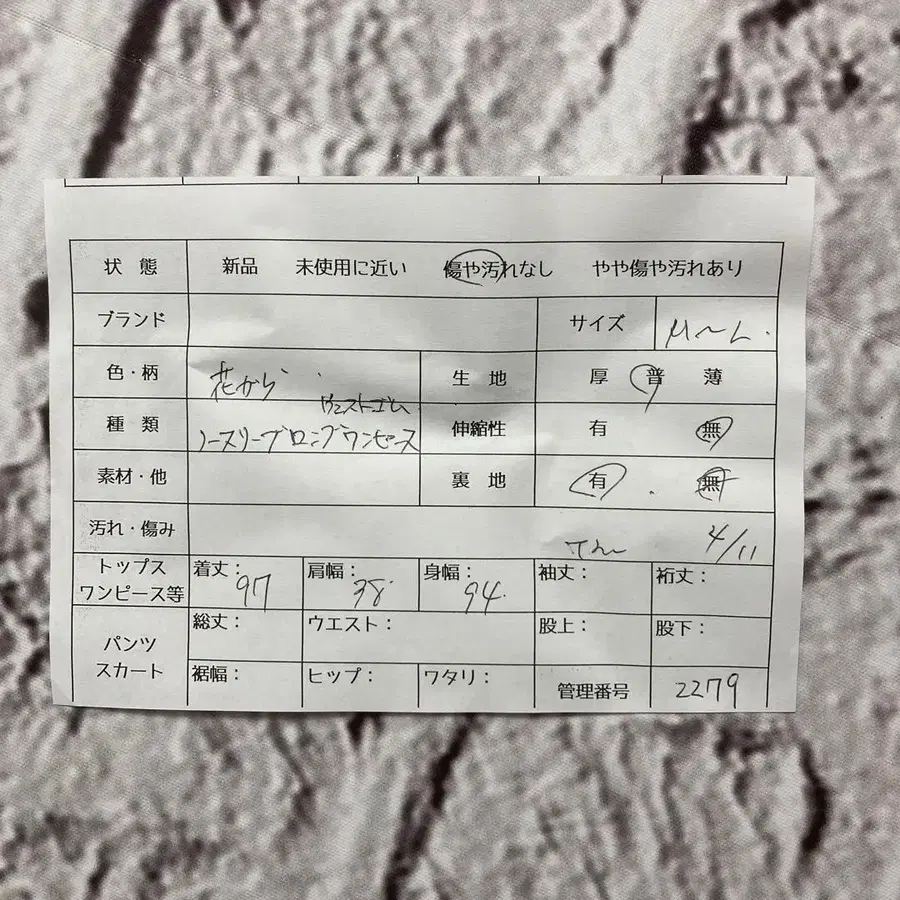 状 態 新品 未使用に近い 傷や汚れなし やや傷や汚れあり
ブランド サイズ M〜L.
色・柄 花がら 生 地 厚 普 薄
ウエストゴム
種 類 ノースリーブロングワンピース 伸縮性 有 無
素材・他 裏 地 有 . 無
汚れ・傷み 4/11
トップス ワンピース等 着丈: 97 肩幅: 38 身幅: 94. 袖丈: 裄丈:
パンツ スカート 総丈: ウエスト: 股上: 股下:
裾幅: ヒップ: ワタリ: 管理番号 2279